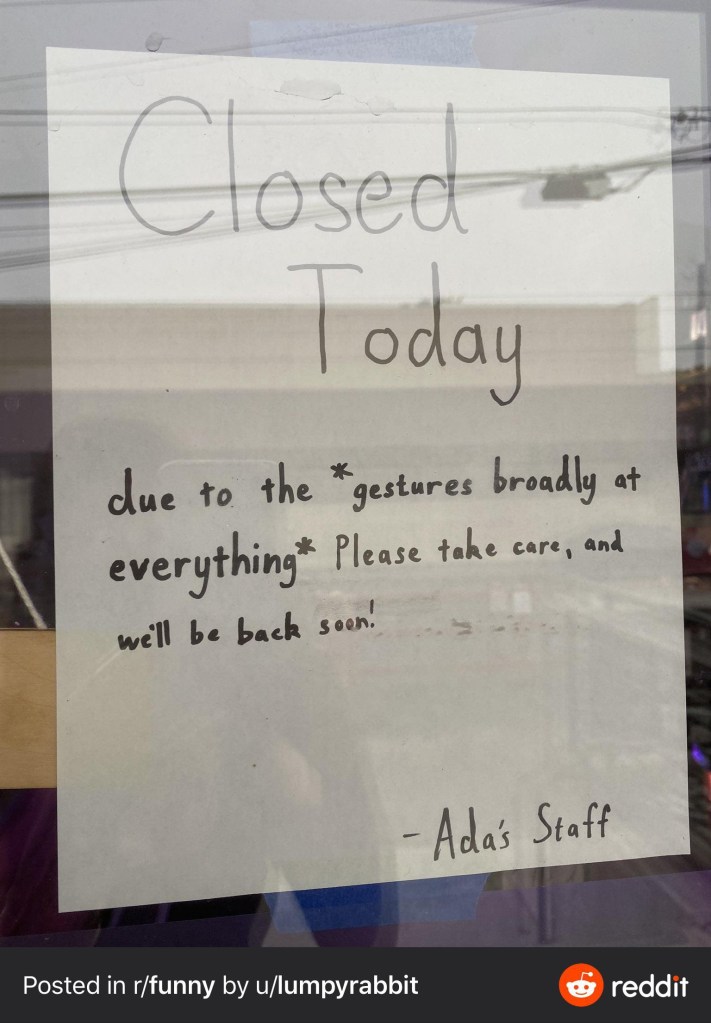 Closed
Today
due to the *gestures broadly at
everything* Please take care, and
we'll be back soon!
- Ada's Staff
Posted in r/funny by u/lumpyrabbit
reddit